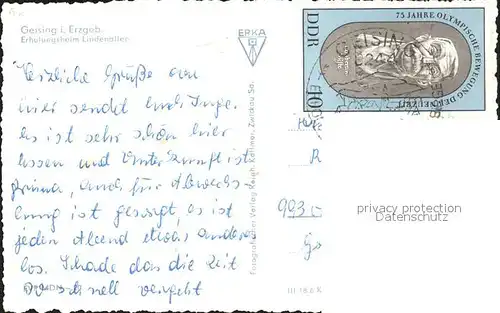 Geising i. Erzgeb.
Erholungsheim Lindenallee
ERKA
DDR
75 JAHRE OLYMPISCHE BEWEGUNG DER NEUZEIT
10
GEISING
Herzliche Grüße von
hier sendet euch Inge.
Es ist sehr schön hier
Essen und Unterkunft ist
prima, auch für Abwechs-
lung ist gesorgt, es ist
jeden Abend etwas anderes
los. Schade das die Zeit
so schnell vergeht
9930
privacy protection
Datenschutz
Fotografischer Verlag Köllner, Zwickau Sa.
III